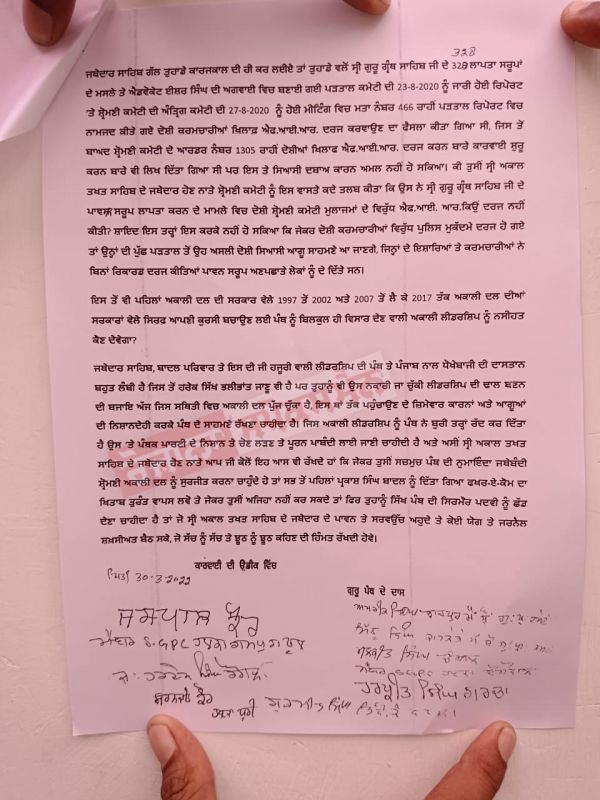 328
ਜਥੇਦਾਰ ਸਾਹਿਬ ਗੱਲ ਤੁਹਾਡੇ ਕਾਰਜਕਾਲ ਦੀ ਹੀ ਕਰ ਲਈਏ ਤਾਂ ਤੁਹਾਡੇ ਵਲੋਂ ਸ੍ਰੀ ਗੁਰੂ ਗ੍ਰੰਥ ਸਾਹਿਬ ਜੀ ਦੇ 328 ਲਾਪਤਾ ਸਰੂਪਾਂ
ਦੇ ਮਸਲੇ ਤੇ ਐਡਵੋਕੇਟ ਈਸ਼ਰ ਸਿੰਘ ਦੀ ਅਗਵਾਈ ਵਿਚ ਬਣਾਈ ਗਈ ਪੜਤਾਲ ਕਮੇਟੀ ਦੀ 23-8-2020 ਨੂੰ ਜਾਰੀ ਹੋਈ ਰਿਪੋਰਟ
'ਤੇ ਸ਼੍ਰੋਮਣੀ ਕਮੇਟੀ ਦੀ ਅੰਤ੍ਰਿਗ ਕਮੇਟੀ ਦੀ 27-8-2020 ਨੂੰ ਹੋਈ ਮੀਟਿੰਗ ਵਿਚ ਮਤਾ ਨੰਬਰ 466 ਰਾਹੀਂ ਪੜਤਾਲ ਰਿਪੋਰਟ ਵਿਚ
ਨਾਮਜਦ ਕੀਤੇ ਗਏ ਦੋਸ਼ੀ ਕਰਮਚਾਰੀਆਂ ਖਿਲਾਫ਼ ਐਫ.ਆਈ.ਆਰ. ਦਰਜ ਕਰਵਾਉਣ ਦਾ ਫੈਸਲਾ ਕੀਤਾ ਗਿਆ ਸੀ, ਜਿਸ ਤੋਂ
ਬਾਅਦ ਸ਼੍ਰੋਮਣੀ ਕਮੇਟੀ ਦੇ ਆਰਡਰ ਨੰਬਰ 1305 ਰਾਹੀਂ ਦੋਸ਼ੀਆਂ ਖਿਲਾਫ ਐਫ.ਆਈ.ਆਰ. ਦਰਜ ਕਰਨ ਬਾਰੇ ਕਾਰਵਾਈ ਸ਼ੁਰੂ
ਕਰਨ ਬਾਰੇ ਵੀ ਲਿਖ ਦਿੱਤਾ ਗਿਆ ਸੀ ਪਰ ਇਸ ਤੇ ਸਿਆਸੀ ਦਬਾਅ ਕਾਰਨ ਅਮਲ ਨਹੀਂ ਹੋ ਸਕਿਆ। ਕੀ ਤੁਸੀਂ ਸ੍ਰੀ ਅਕਾਲ
ਤਖਤ ਸਾਹਿਬ ਦੇ ਜਥੇਦਾਰ ਹੋਣ ਨਾਤੇ ਸ਼੍ਰੋਮਣੀ ਕਮੇਟੀ ਨੂੰ ਇਸ ਵਾਸਤੇ ਕਦੇ ਤਲਬ ਕੀਤਾ ਕਿ ਉਸ ਨੇ ਸ੍ਰੀ ਗੁਰੂ ਗ੍ਰੰਥ ਸਾਹਿਬ ਜੀ ਦੇ
ਪਾਵਨ ਸਰੂਪ ਲਾਪਤਾ ਕਰਨ ਦੇ ਮਾਮਲੇ ਵਿਚ ਦੋਸ਼ੀ ਸ਼੍ਰੋਮਣੀ ਕਮੇਟੀ ਮੁਲਾਜਮਾਂ ਦੇ ਵਿਰੁੱਧ ਐਫ.ਆਈ. ਆਰ.ਕਿਉਂ ਦਰਜ ਨਹੀਂ
ਕੀਤੀ? ਸ਼ਾਇਦ ਇਸ ਤਰ੍ਹਾਂ ਇਸ ਕਰਕੇ ਨਹੀਂ ਹੋ ਸਕਿਆ ਕਿ ਜੇਕਰ ਦੋਸ਼ੀ ਕਰਮਚਾਰੀਆਂ ਵਿਰੁੱਧ ਪੁਲਿਸ ਮੁਕੱਦਮੇ ਦਰਜ ਹੋ ਗਏ
ਤਾਂ ਉਨ੍ਹਾਂ ਦੀ ਪੁੱਛ ਪੜਤਾਲ ਤੋਂ ਉਹ ਅਸਲੀ ਦੋਸ਼ੀ ਸਿਆਸੀ ਆਗੂ ਸਾਹਮਣੇ ਆ ਜਾਣਗੇ, ਜਿਨ੍ਹਾਂ ਦੇ ਇਸ਼ਾਰਿਆਂ ਤੇ ਕਰਮਚਾਰੀਆਂ ਨੇ
ਬਿਨਾਂ ਰਿਕਾਰਡ ਦਰਜ ਕੀਤਿਆਂ ਪਾਵਨ ਸਰੂਪ ਅਣਪਛਾਤੇ ਲੋਕਾਂ ਨੂੰ ਦੇ ਦਿੱਤੇ ਸਨ।
ਇਸ ਤੋਂ ਵੀ ਪਹਿਲਾਂ ਅਕਾਲੀ ਦਲ ਦੀ ਸਰਕਾਰ ਵੇਲੇ 1997 ਤੋਂ 2002 ਅਤੇ 2007 ਤੋਂ ਲੈ ਕੇ 2017 ਤੱਕ ਅਕਾਲੀ ਦਲ ਦੀਆਂ
ਸਰਕਾਰਾਂ ਵੇਲੇ ਸਿਰਫ ਆਪਣੀ ਕੁਰਸੀ ਬਚਾਉਣ ਲਈ ਪੰਥ ਨੂੰ ਬਿਲਕੁਲ ਹੀ ਵਿਸਾਰ ਦੇਣ ਵਾਲੀ ਅਕਾਲੀ ਲੀਡਰਸ਼ਿਪ ਨੂੰ ਨਸੀਹਤ
ਕੌਣ ਦੇਵੇਗਾ?
ਜਥੇਦਾਰ ਸਾਹਿਬ, ਬਾਦਲ ਪਰਿਵਾਰ ਤੇ ਇਸ ਦੀ ਜੀ ਹਜ਼ੂਰੀ ਵਾਲੀ ਲੀਡਰਸ਼ਿਪ ਦੀ ਪੰਥ ਤੇ ਪੰਜਾਬ ਨਾਲ ਧੋਖੇਬਾਜੀ ਦੀ ਦਾਸਤਾਨ
ਬਹੁਤ ਲੰਬੀ ਹੈ ਜਿਸ ਤੋਂ ਹਰੇਕ ਸਿੱਖ ਭਲੀਭਾਂਤ ਜਾਣੂ ਵੀ ਹੈ ਪਰ ਤੁਹਾਨੂੰ ਵੀ ਉਸ ਨਕਾਰੀ ਜਾ ਚੁੱਕੀ ਲੀਡਰਸ਼ਿਪ ਦੀ ਢਾਲ ਬਣਨ
ਦੀ ਬਜਾਇ ਅੱਜ ਜਿਸ ਸਥਿਤੀ ਵਿਚ ਅਕਾਲੀ ਦਲ ਪੁੱਜ ਚੁੱਕਾ ਹੈ, ਇਸ ਥਾਂ ਤੱਕ ਪਹੁੰਚਾਉਣ ਦੇ ਜ਼ਿਮੇਵਾਰ ਕਾਰਨਾਂ ਅਤੇ ਆਗੂਆਂ
ਦੀ ਨਿਸ਼ਾਨਦੇਹੀ ਕਰਕੇ ਪੰਥ ਦੇ ਸਾਹਮਣੇ ਰੱਖਣਾ ਚਾਹੀਦਾ ਹੈ। ਜਿਸ ਅਕਾਲੀ ਲੀਡਰਸ਼ਿਪ ਨੂੰ ਪੰਥ ਨੇ ਬੁਰੀ ਤਰ੍ਹਾਂ ਰੱਦ ਕਰ ਦਿੱਤਾ
ਹੈ ਉਸ 'ਤੇ ਪੰਥਕ ਪਾਰਟੀ ਦੇ ਨਿਸ਼ਾਨ ਤੇ ਚੋਣ ਲੜਣ ਤੇ ਪੂਰਨ ਪਾਬੰਦੀ ਲਾਈ ਜਾਣੀ ਚਾਹੀਦੀ ਹੈ ਅਤੇ ਅਸੀਂ ਸ੍ਰੀ ਅਕਾਲ ਤਖਤ
ਸਾਹਿਬ ਦੇ ਜਥੇਦਾਰ ਹੋਣ ਨਾਤੇ ਆਪ ਜੀ ਕੋਲੋਂ ਇਹ ਆਸ ਵੀ ਰੱਖਦੇ ਹਾਂ ਕਿ ਜੇਕਰ ਤੁਸੀਂ ਸਚਮੁਚ ਪੰਥ ਦੀ ਨੁਮਾਇੰਦਾ ਜਥੇਬੰਦੀ
ਸ਼੍ਰੋਮਣੀ ਅਕਾਲੀ ਦਲ ਨੂੰ ਸੁਰਜੀਤ ਕਰਨਾ ਚਾਹੁੰਦੇ ਹੋ ਤਾਂ ਸਭ ਤੋਂ ਪਹਿਲਾਂ ਪ੍ਰਕਾਸ਼ ਸਿੰਘ ਬਾਦਲ ਨੂੰ ਦਿੱਤਾ ਗਿਆ ਫਖਰ-ਏ-ਕੌਮ ਦਾ
ਖਿਤਾਬ ਤੁਰੰਤ ਵਾਪਸ ਲਵੋ ਤੇ ਜੇਕਰ ਤੁਸੀਂ ਅਜਿਹਾ ਨਹੀਂ ਕਰ ਸਕਦੇ ਤਾਂ ਫਿਰ ਤੁਹਾਨੂੰ ਸਿੱਖ ਪੰਥ ਦੀ ਸਿਰਮੌਰ ਪਦਵੀ ਨੂੰ ਛੱਡ
ਦੇਣਾ ਚਾਹੀਦਾ ਹੈ ਤਾਂ ਜੋ ਸ੍ਰੀ ਅਕਾਲ ਤਖਤ ਸਾਹਿਬ ਦੇ ਜਥੇਦਾਰ ਦੇ ਪਾਵਨ ਤੇ ਸਰਵਉੱਚ ਅਹੁਦੇ ਤੇ ਕੋਈ ਯੋਗ ਤੇ ਜਰਨੈਲ
ਸ਼ਖ਼ਸੀਅਤ ਬੈਠ ਸਕੇ, ਜੋ ਸੱਚ ਨੂੰ ਸੱਚ ਤੇ ਝੂਠ ਨੂੰ ਝੂਠ ਕਹਿਣ ਦੀ ਹਿੰਮਤ ਰੱਖਦੀ ਹੋਵੇ।
ਕਾਰਵਾਈ ਦੀ ਉਡੀਕ ਵਿੱਚ
ਮਿਤੀ 30-3-2022
ਗੁਰੂ ਪੰਥ ਦੇ ਦਾਸ
ਜਸਪਾਲ ਕੌਰ
ਮੈਂਬਰ S.G.P.C
ਹਰਪ੍ਰੀਤ ਸਿੰਘ ਗਰਚਾ
ਗੁਰਮੀਤ ਸਿੰਘ